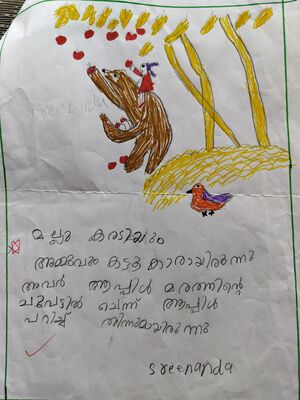 sreenanda
മല്ലു കരടിയും
അമ്മുവും കൂട്ടുകാരായിരുന്നു
അവർ ആപ്പിൾ മരത്തിന്റെ
ചുവട്ടിൽ ചെന്ന് ആപ്പിൾ
പറിച്ച് തിന്നുമായിരുന്നു
sreenanda